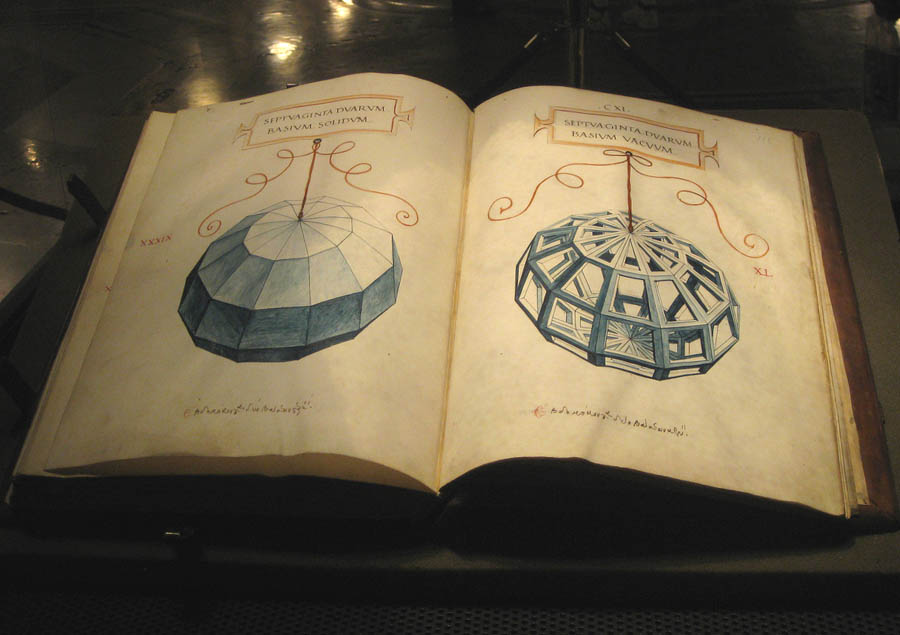 SEPTVAGINTA DVARVM
BASIVM SOLIDVM
XXXIX
CXI.
SEPTVAGINTA DVARVM
BASIVM VACVVM
XL